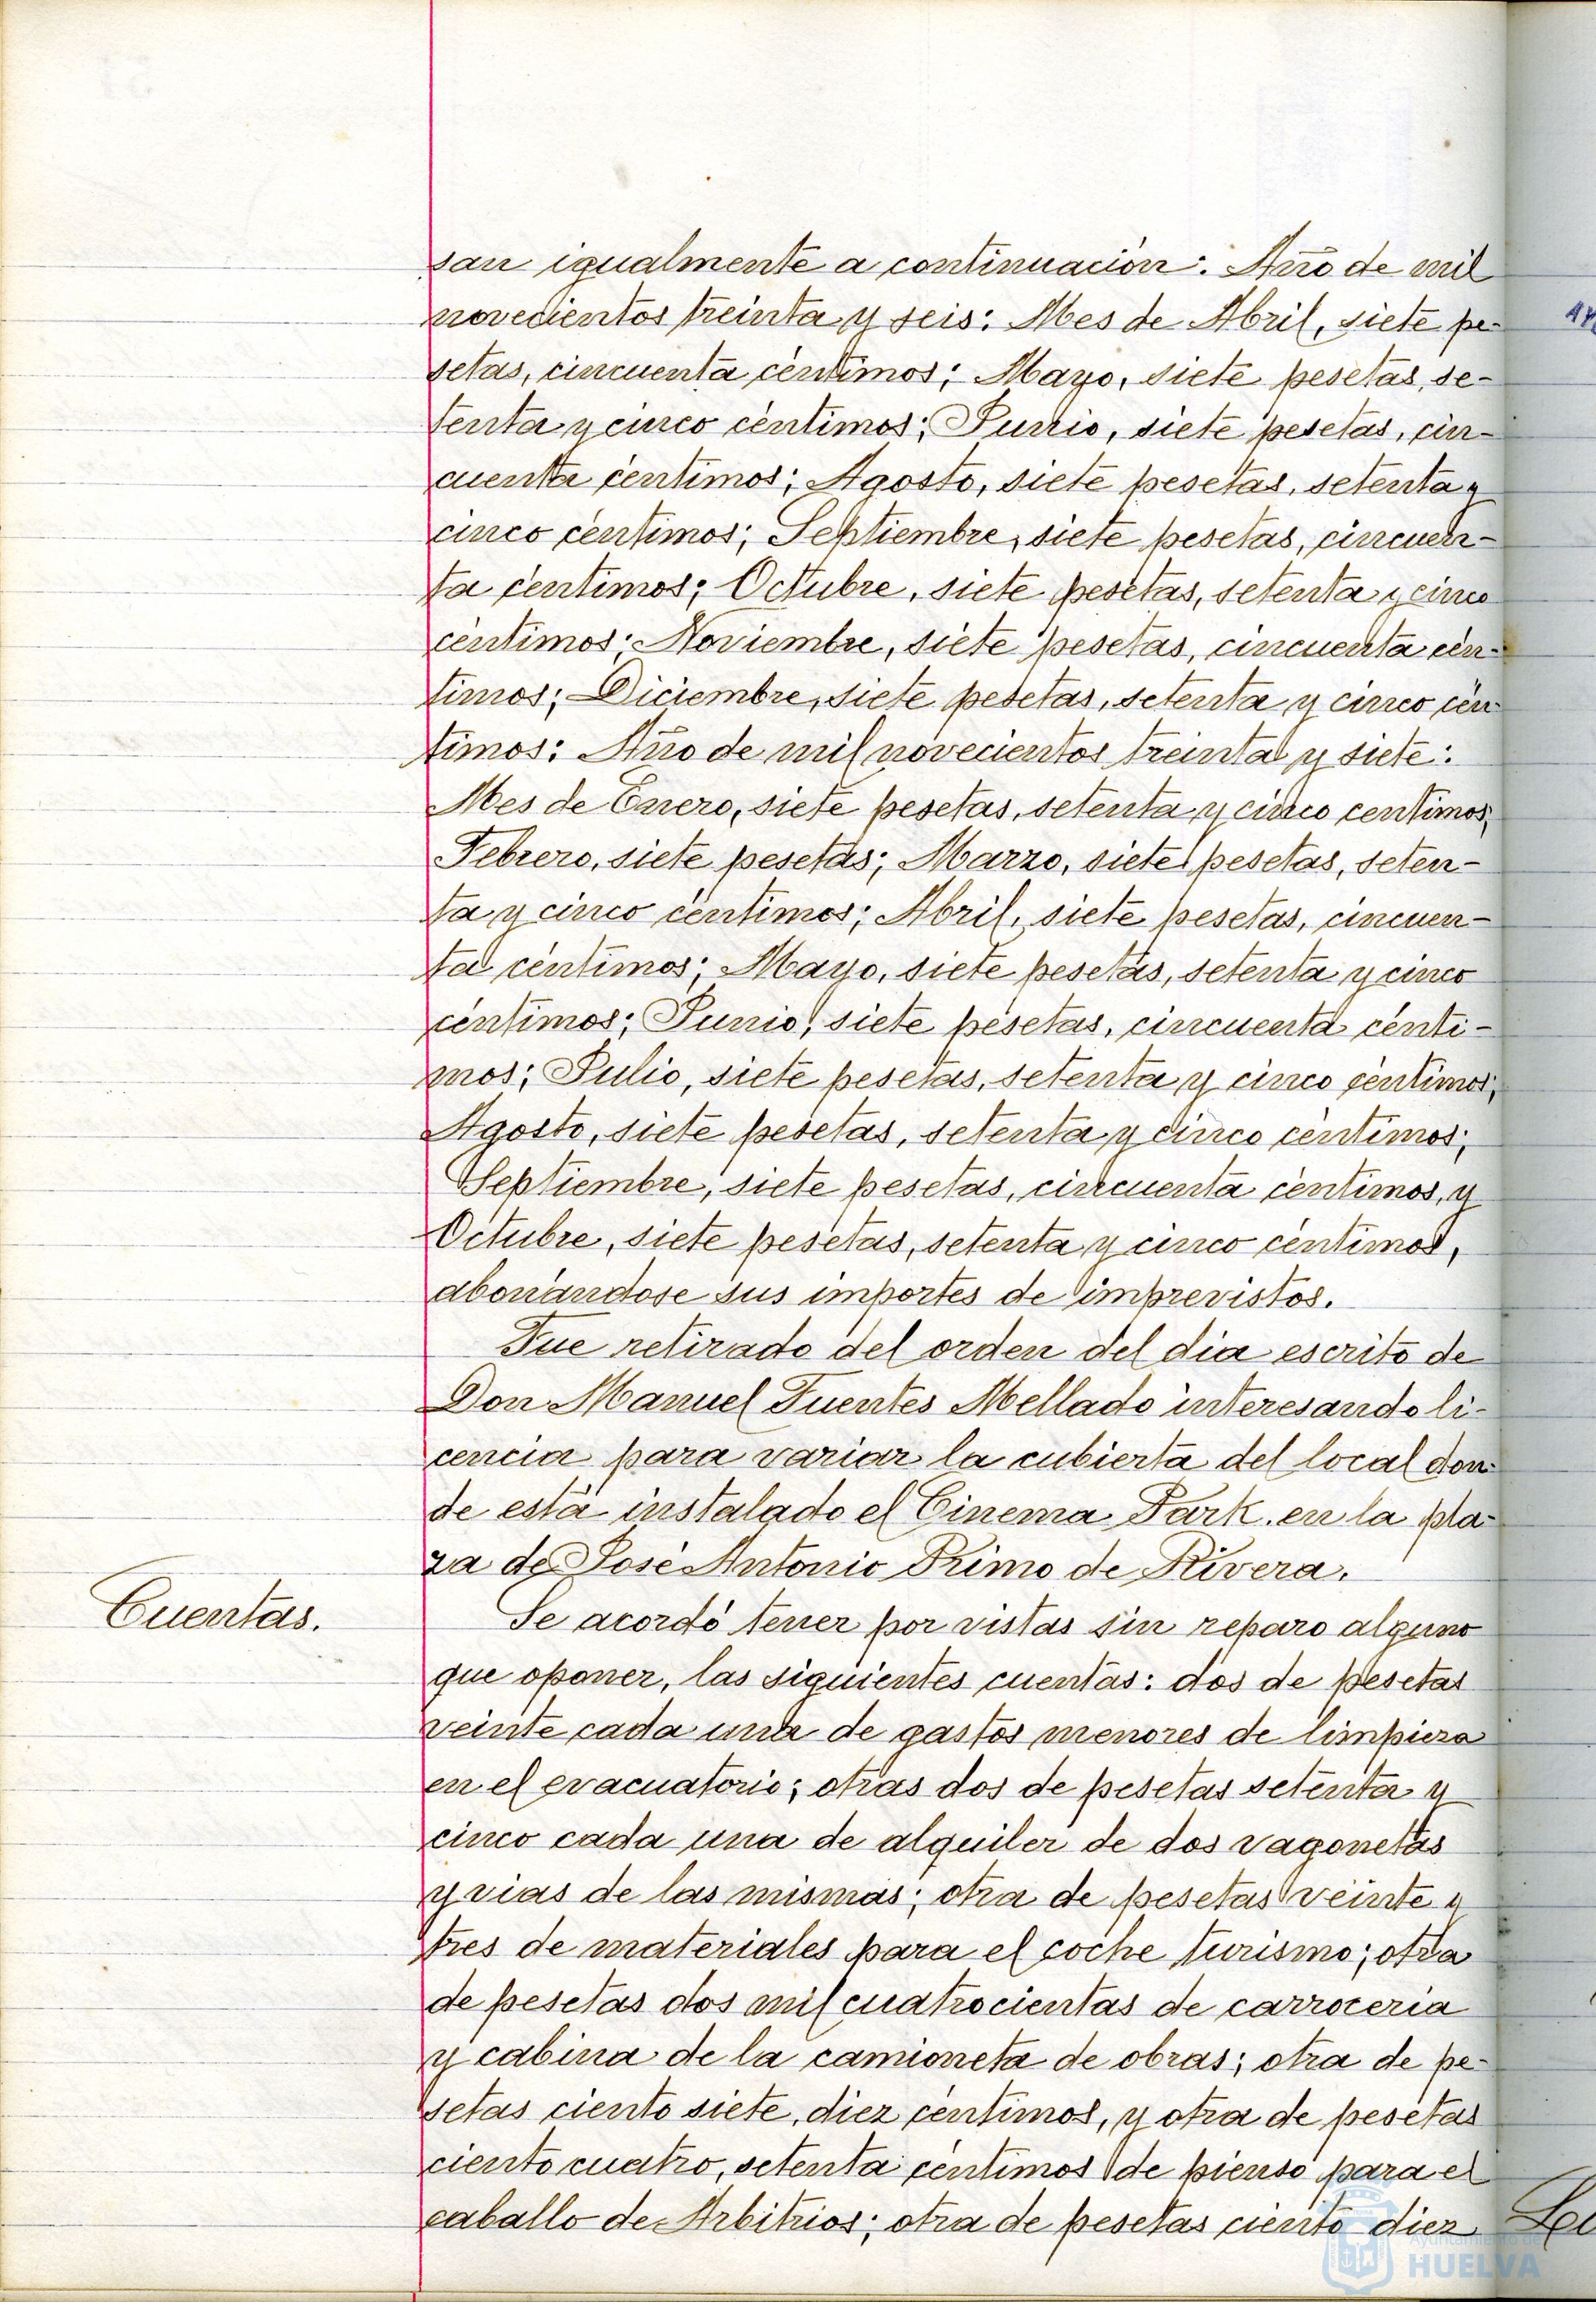 san igualmente a continuación: Año de mil
novecientos treinta y seis: Mes de Abril, siete pe-
setas, cincuenta céntimos; Mayo, siete pesetas, se-
tenta y cinco céntimos; Junio, siete pesetas, cin-
cuenta céntimos; Agosto, siete pesetas, setenta y
cinco céntimos; Septiembre, siete pesetas, cincuen-
ta céntimos; Octubre, siete pesetas, setenta y cinco
céntimos; Noviembre, siete pesetas, cincuenta cén-
timos; Diciembre, siete pesetas, setenta y cinco cén
timos: Año de mil novecientos treinta y siete:
Mes de Enero, siete pesetas, setenta y cinco centimos;
Febrero, siete pesetas; Marzo, siete pesetas, seten-
ta y cinco céntimos; Abril, siete pesetas, cincuen-
ta céntimos; Mayo, siete pesetas, setenta y cinco
céntimos; Junio, siete pesetas, cincuenta cénti-
mos; Julio, siete pesetas, setenta y cinco céntimos;
Agosto, siete pesetas, setenta y cinco céntimos;
Septiembre, siete pesetas, cincuenta céntimos, y
Octubre, siete pesetas, setenta y cinco céntimos,
abonándose sus importes de imprevistos.
Fue retirado del orden del dia escrito de
Don Manuel Fuentes Mellado interesando li-
cencia para variar la cubierta del local don-
de está instalado el Cinema Park en la pla-
za de José Antonio Primo de Rivera.
Cuentas.
Se acordó tener por vistas sin reparo alguno
que oponer, las siguientes cuentas: dos de pesetas
veinte cada una de gastos menores de limpieza
en el evacuatorio; otras dos de pesetas setenta y
cinco cada una de alquiler de dos vagonetas
y vias de las mismas; otra de pesetas veinte y
tres de materiales para el coche turismo; otra
de pesetas dos mil cuatrocientas de carroceria
y cabina de la camioneta de obras; otra de pe-
setas ciento siete, diez céntimos, y otra de pesetas
ciento cuatro, setenta céntimos de pienso para el
caballo de Arbitrios; otra de pesetas ciento diez
Ayuntamiento de
HUELVA